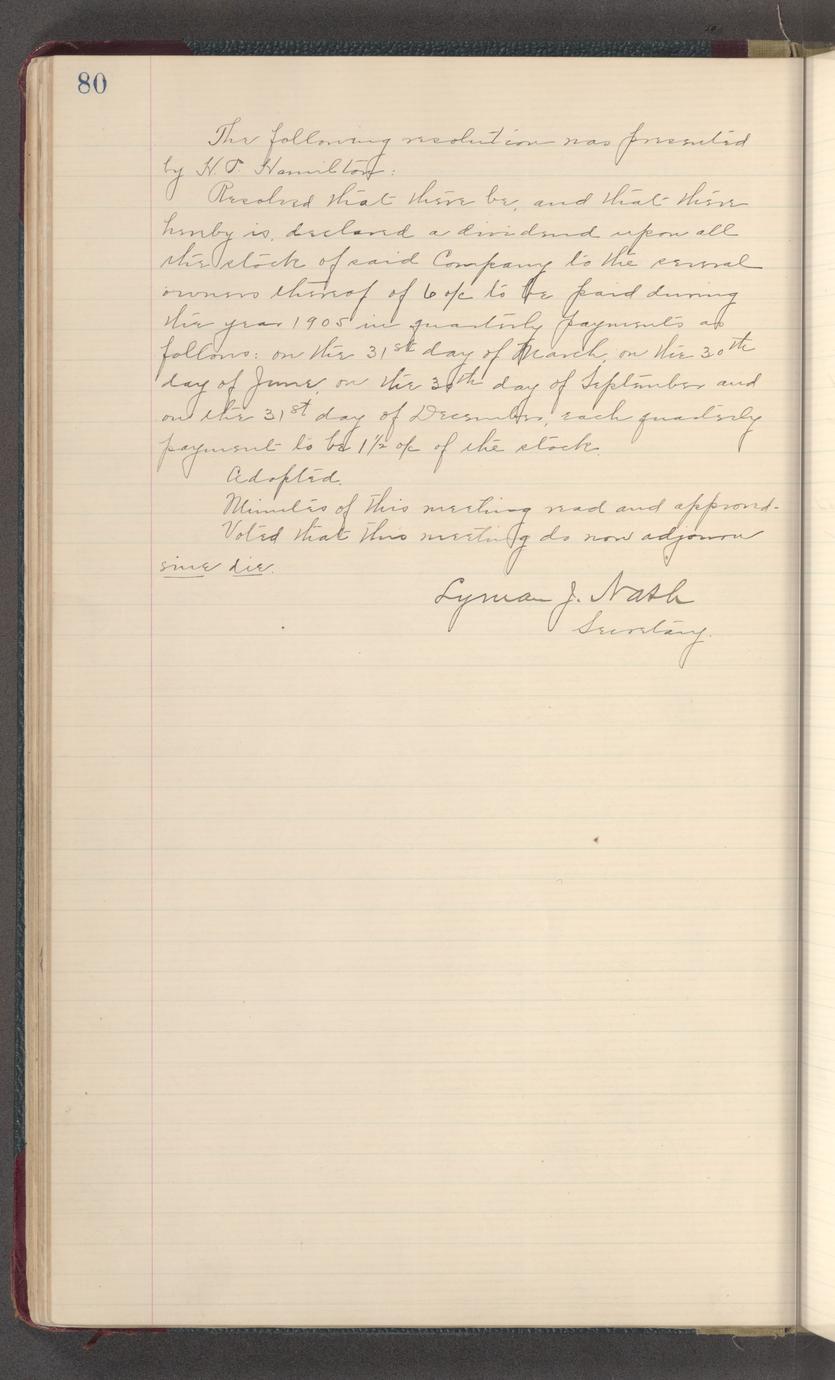 80
The following resolution was presented
by H. P. Hamilton:
Resolved that there be, and that there
hereby is, declared a dividend upon all
the stock of said Company to the several
owners thereof of 6 o/c to be paid during
the year 1905 in quarterly payments as
follows: on the 31st day of March, on the 30th
day of June, on the 30th day of September and
on the 31st day of December, each quarterly
payment to be 1 1/2 o/c of the stock.
Adopted.
Minutes of this meeting read and approved.
Voted that this meeting do now adjourn
sine die.
Lyman J. Nash
Secretary.